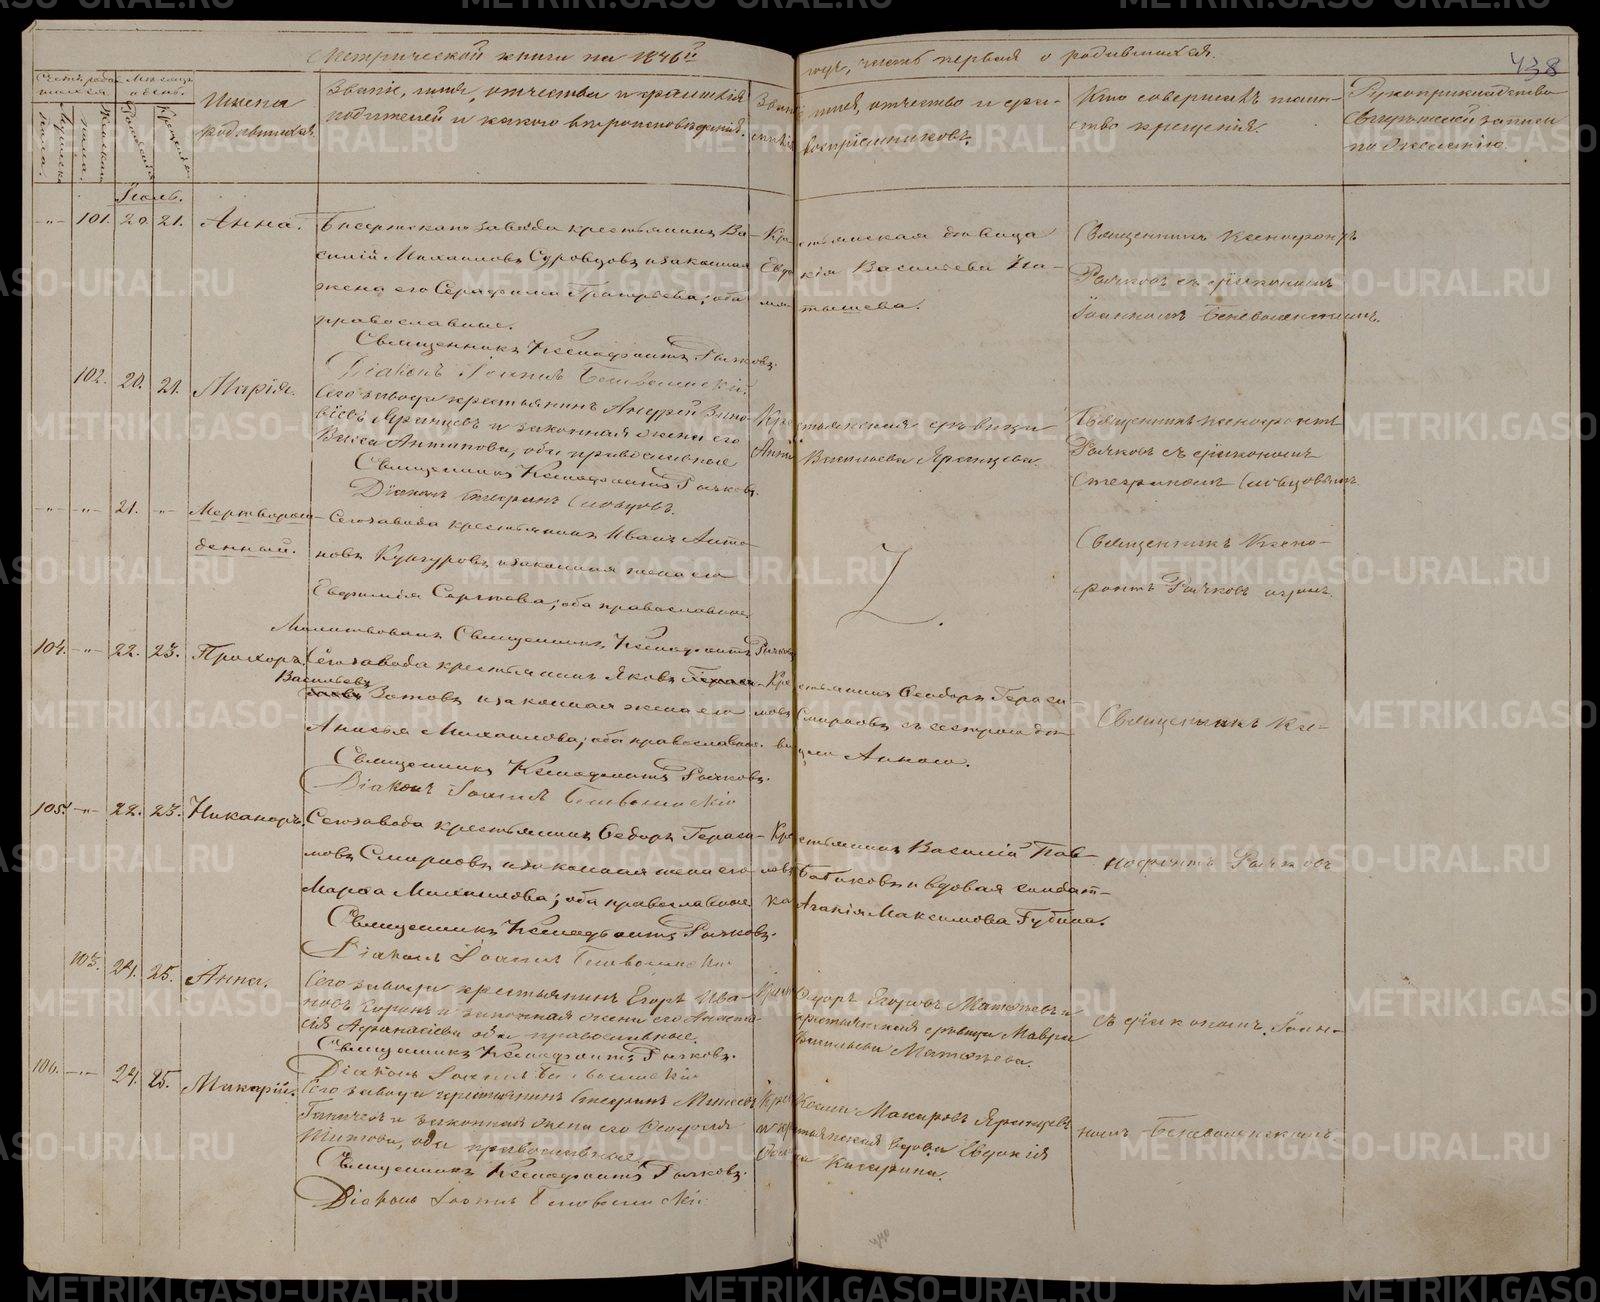 Метрической книги на 1846й
годъ, часть первая о родившихся.
438
Счетъ родившихся
Мужеска пола.
Женска пола.
Мѣсяцъ и день.
Рожденія
Крещенія
Имена
родившихся.
Званіе, имя, отчество и фамилія
родителей и какого вѣроисповѣданія.
Званіе, имя, отчество и фамилія
воспріемниковъ.
Кто совершалъ таинство
крещенія.
Рукоприкладство
свидѣтелей записи
по желанію.
Іюль.
-"- 101. 20. 21. Анна.
Бисертскаго завода крестьянинъ Василій
Михаиловъ Суровцовъ и законная
жена его Серафима Григорьева; оба
православные.
Священникъ Ксенофонтъ Рычковъ
Діаконъ Іоаннъ Беневоленскій
Крестьянская дѣвица
Евдокія Васильева
Священникъ Ксенофонтъ
Рычковъ съ діакономъ
Іоанномъ Беневоленскимъ.
102. 20. 21. Марія.
Сего завода крестьянинъ Андрей Зиновіевъ
Яранцевъ и законная жена его
Васса Антипова, оба православные
Священникъ Ксенофонтъ Рычковъ.
Діаконъ Стефанъ Словцовъ.
Крестьянская дѣвица
Анна Васильева Яранцева.
Священникъ Ксенофонтъ
Рычковъ съ діакономъ
Стефаномъ Словцовымъ
-"- -"- 21. -"- Мертворожденный.
Сего завода крестьянинъ Иванъ Антоновъ
Кунгуровъ и законная жена его
Евфимія Сергѣева; оба православные.
Молитвовалъ Священникъ Ксенофонтъ Рычковъ
Z.
Священникъ Ксенофонтъ
Рычковъ
104. -"- 22. 23. Прохоръ.
Сего завода крестьянинъ Яковъ
Васильевъ
Зотовъ и законная жена его
Анисья Михаилова; оба православные.
Священникъ Ксенофонтъ Рычковъ.
Діаконъ Іоаннъ Беневоленскій
Крестьянинъ Ѳеодоръ Герасимовъ
Смирновъ съ сестрою дѣвицею
Анною.
Священникъ Ксе-
105. -"- 22. 23. Никаноръ.
Сего завода крестьянинъ Ѳедоръ Герасимовъ
Смирновъ и законная жена его
Марѳа Михаилова; оба православные
Священникъ Ксенофонтъ Рычковъ.
Діаконъ Іоаннъ Беневоленскій
Крестьянинъ Василій Павловъ
Батаковъ и вдовая солдатка
Агапія Максимова Губина.
нофонтъ Рычковъ
103. 24. 25. Анна.
Сего завода крестьянинъ Егоръ Ивановъ
и законная жена его Анастасія
Афанасіева оба православные.
Священникъ Ксенофонтъ Рычковъ.
Діаконъ Іоаннъ Беневоленскій
Ѳедоръ Егоровъ и
крестьянская дѣвица Мавра
Васильева
съ діакономъ Іоан-
106. -"- 24. 25. Макарій.
Сего завода крестьянинъ Стефанъ
и законная жена его Ѳеодосія
Титова, оба православные
Священникъ Ксенофонтъ Рычковъ.
Діаконъ Іоаннъ Беневоленскій
Козма Макаровъ Яранцевъ
и крестьянская вдова Евдокія
номъ Беневоленскимъ
METRIKI.GASO-URAL.RU